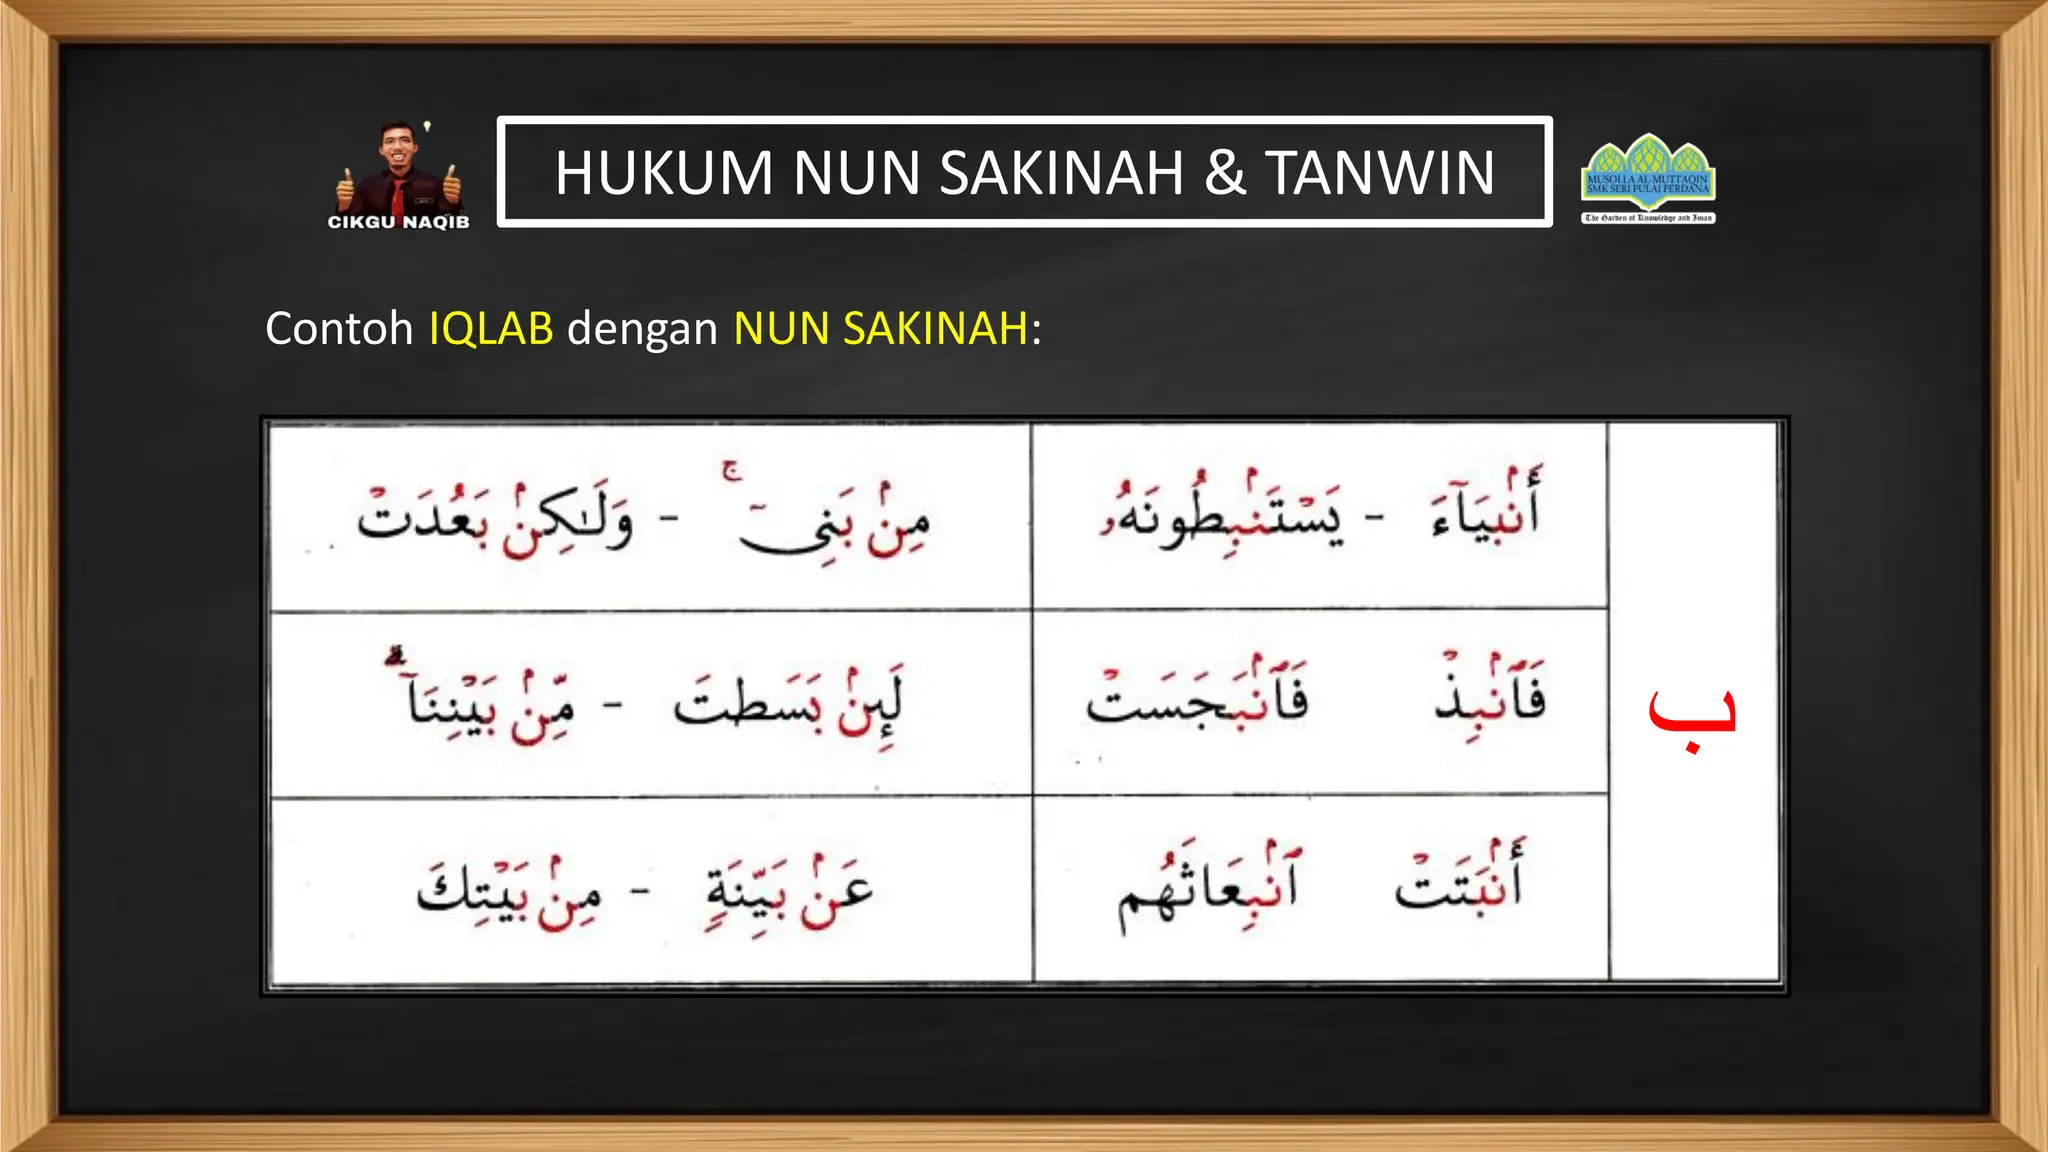 CIKGU NAQIB
HUKUM NUN SAKINAH & TANWIN
MUSOLLA AL-MUTTAQIN
SMK SERI PULAI PERDANA
The Garden of Knowledge and Iman
Contoh IQLAB dengan NUN SAKINAH:
ب
أَنۢبِيَآءَ - يَسْتَنۢبِطُونَهُۥ
مِنۢ بَنِىٓ ۚ - وَلَـٰكِنۢ بَعُدَتْ
فَٱنۢبِذْ فَٱنۢبَجَسَتْ
لَئِنۢ بَسَطتَ - مِّنۢ بَيْنِنَآ ۗ
أَنۢبَتَتْ ٱنۢبِعَاثَهُم
عَنۢ بَيِّنَةٍ - مِنۢ بَيْتِكَ